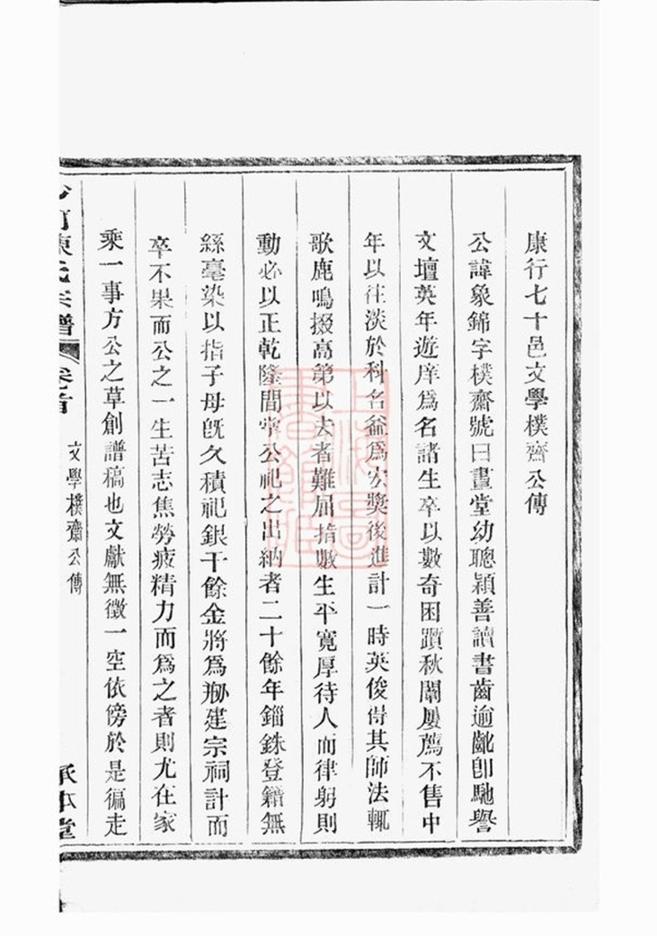 康行七十邑文學樸齋公傳
公諱象錦字樸齋號曰晝堂幼聰穎善讀書齒逾齔卽馳譽
文壇英年遊庠爲名諸生卒以數奇困躓秋闈屢薦不售中
年以往淡於科名益爲宏奬後進計一時英俊得其師法輒
歌鹿鳴掇高第以去者難屈指數生平寬厚待人而律躬則
動必以正乾隆間掌公祀之出納者二十餘年錙銖登籍無
絲毫染以指子母旣久積祀銀千餘金將爲剏建宗祠計而
卒不果而公之一生苦志焦勞疲精力而爲之者則尤在家
乘一事方公之草創譜稿也文獻無徵一空依傍於是徧走
陳氏宗譜 卷首 文學樸齋公傳 承本堂